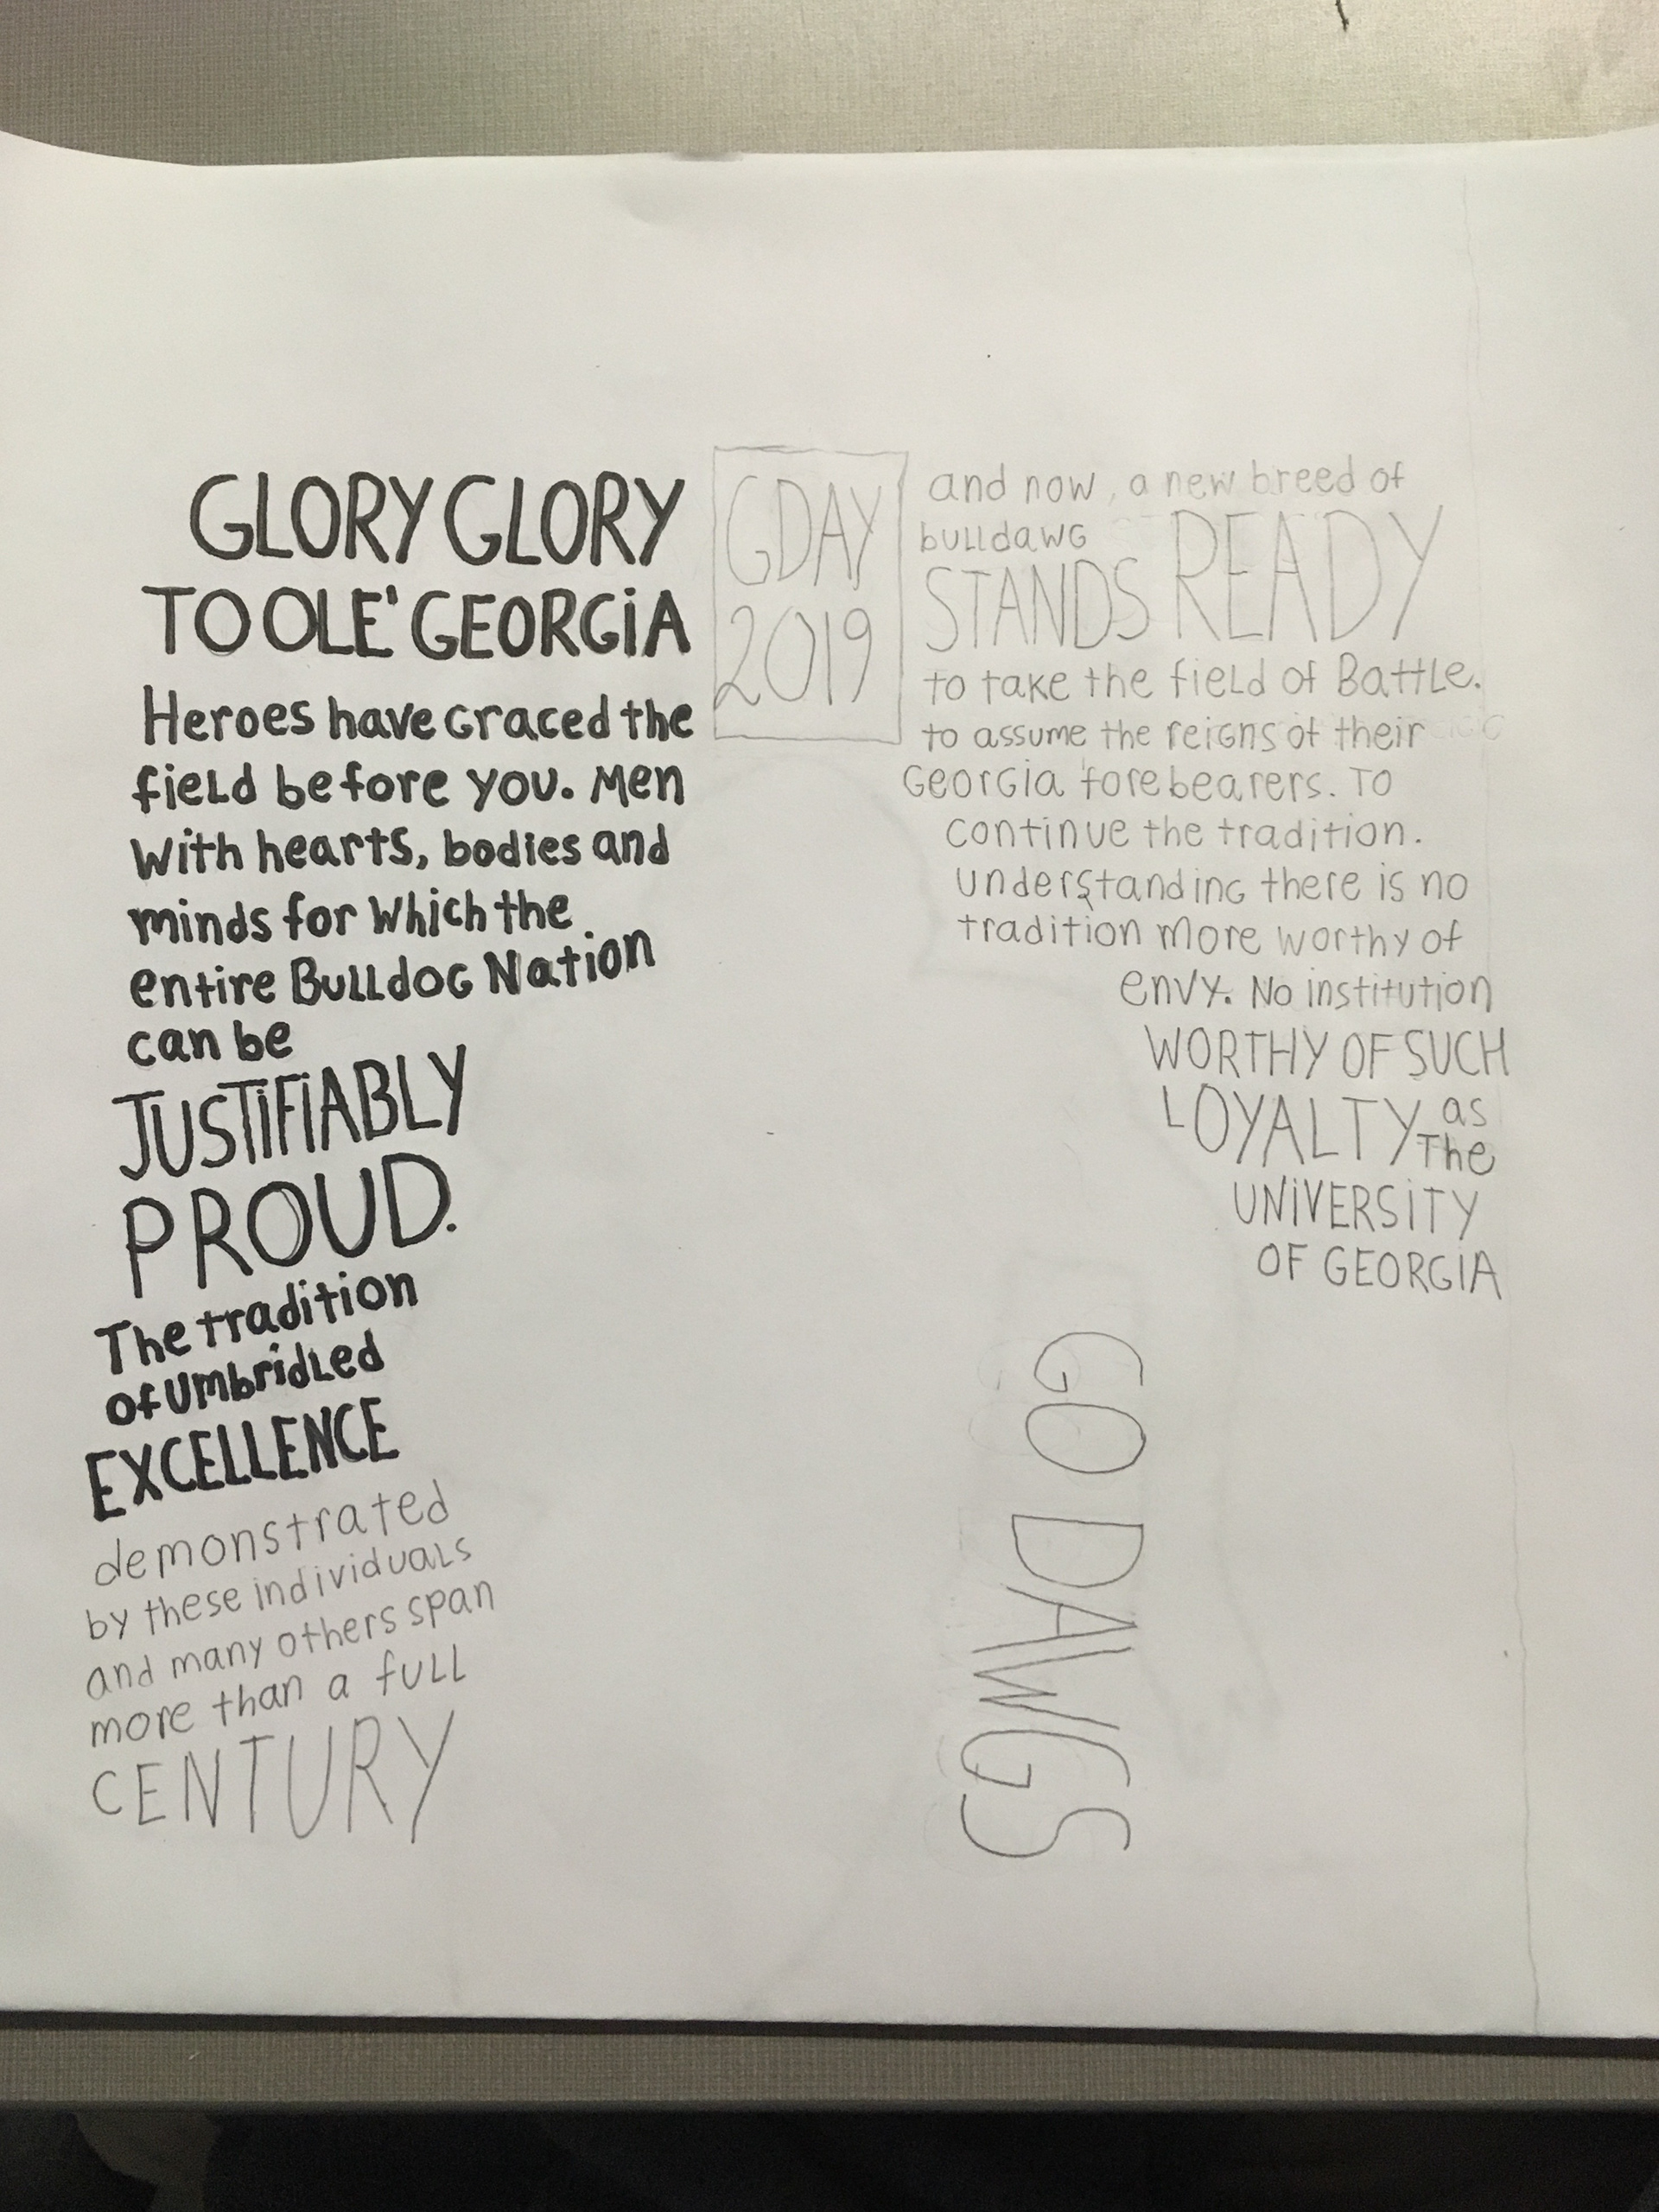 GLORY GLORY
TO OLE' GEORGiA
Heroes have Graced the
field before you. Men
With hearts, bodies and
minds for Which the
entire BullDOG Nation
can be
JUSTiFiABLY
PROUD.
The tradition
of Umbridled
EXCELLENCE
demonstrated
by these individuals
and many others span
more than a full
CENTURY
GDAY
2019
and now, a new breed of
bulldawG
STANDS READY
to take the field of Battle.
to assume the reiGns of their
GeorGia forebearers. To
continue the tradition.
understanding there is no
tradition more worthy of
envy. No institution
WORTHY OF SUCH
LOYALTY as
The
UNiVERSiTY
OF GEORGiA
GO DAWGS